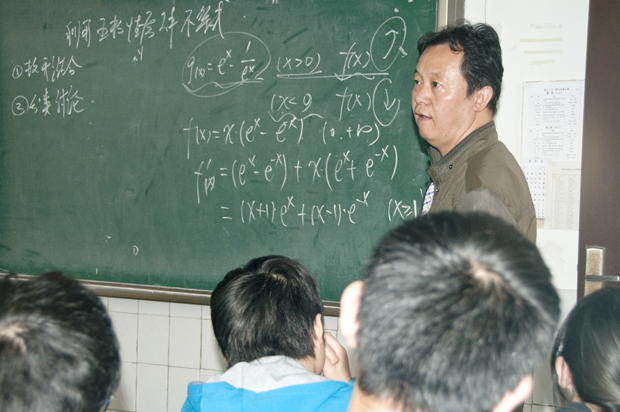 利用函数性态解不等式
① 数形结合
② 分类讨论.
g(x)=e^x-1/e^x (x>0) f(x)↑
(x<0 f(x)↓
f(x)=x(e^x-e^{-x}) (0,+∞)
f'(x)=(e^x-e^{-x})+x(e^x+e^{-x})
=(x+1)·e^x+(x-1)·e^{-x} (x≥1